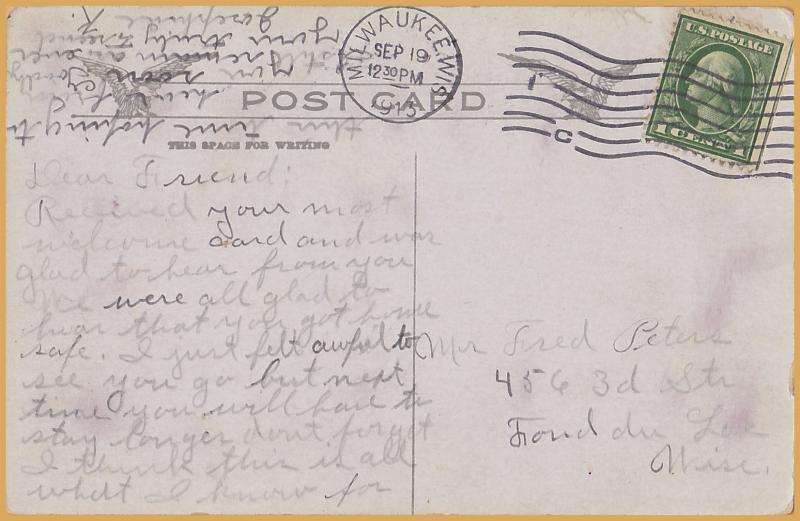 MILWAUKEE, WIS.
SEP 19
12 30 PM
1913
U.S. POSTAGE
1 CENT 1
POST CARD
THIS SPACE FOR WRITING
Dear Friend:
Received your most
welcome card and was
glad to hear from you
We were all glad to
hear that you got home
safe. I just felt awful to
see you go but next
time you will have to
stay longer dont forget
I think this is all
what I know for
this time hoping to
hear from you soon
I still remain as ever
your truly Friend
Josephine K.
Mr Fred Peters
456 3d Str
Fond du Lac
Wisc.